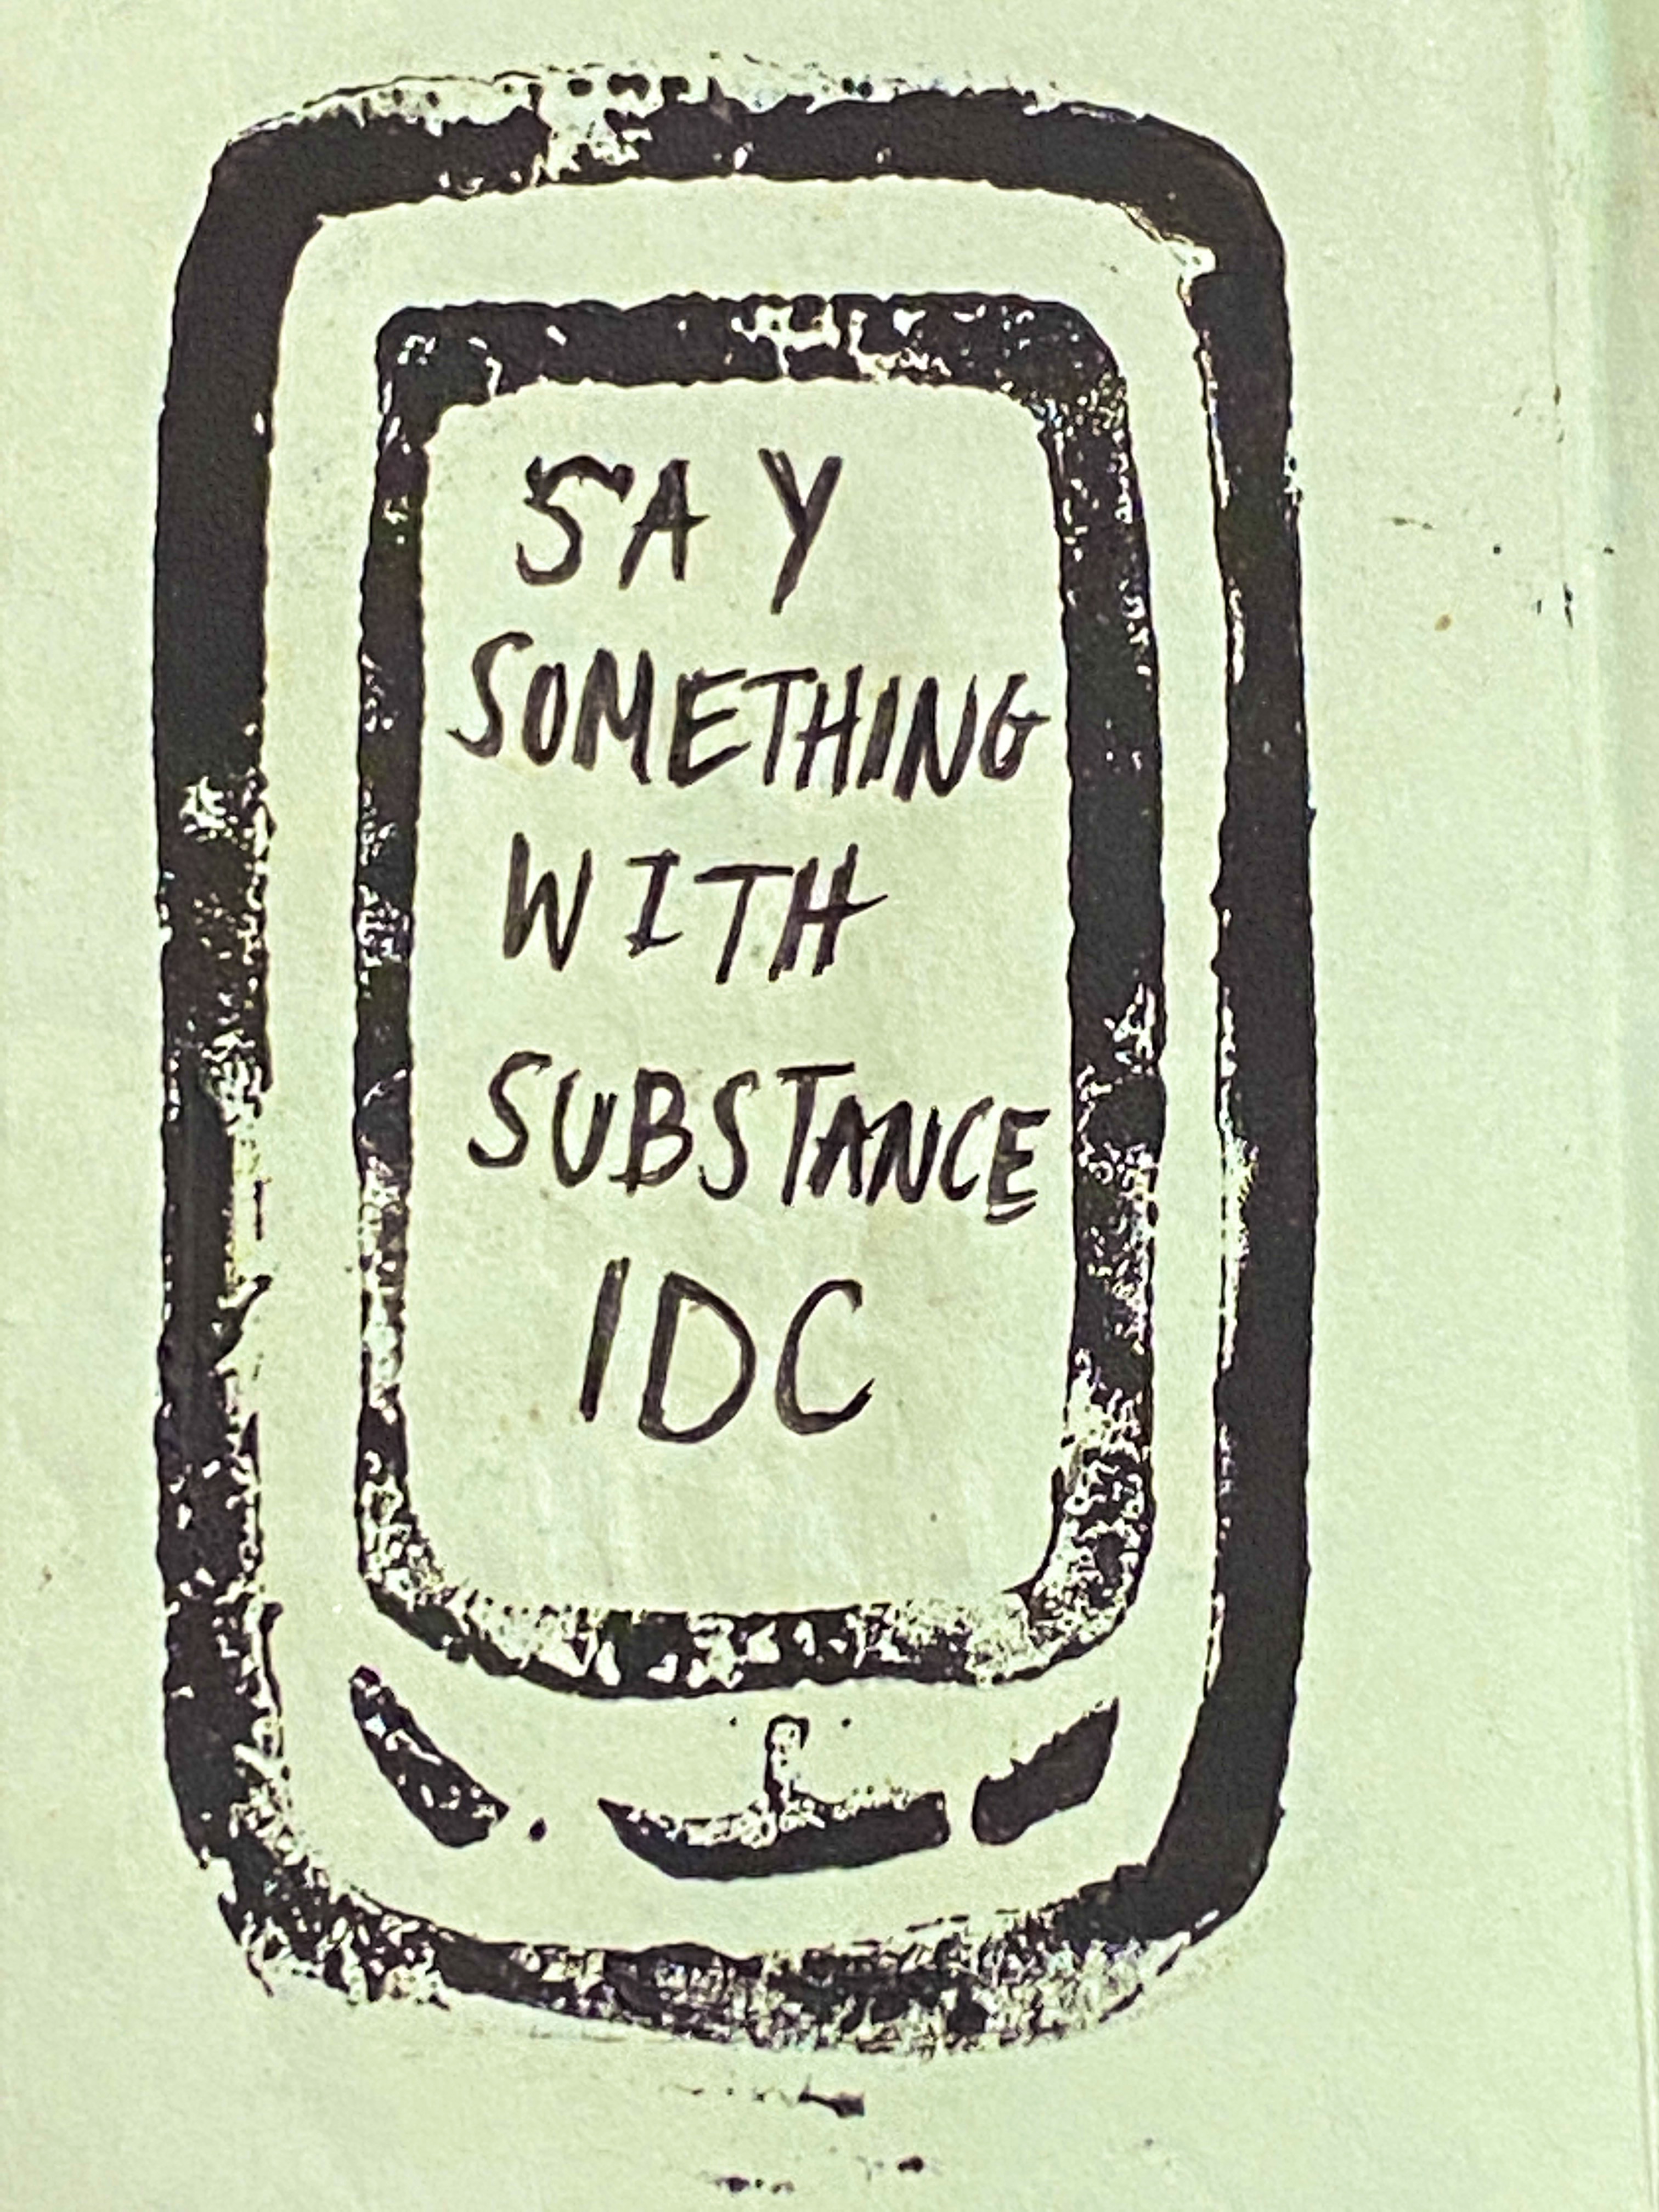 SAY
SOMETHING
WITH
SUBSTANCE
IDC